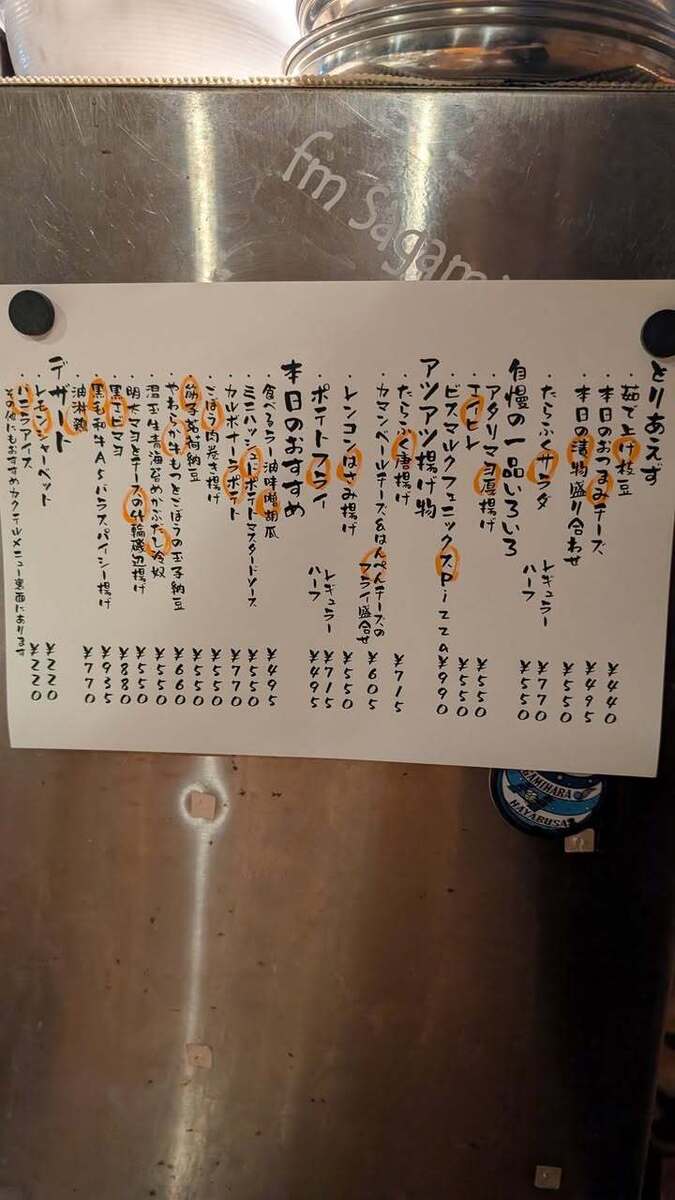 fm Sagami
とりあえず
・茹で上げ枝豆 ¥440
・本日のおつまみチーズ ¥495
・本日の漬物盛り合わせ ¥550
・たらふくサラダ レギュラー ¥770
ハーフ ¥550
自慢の一品いろいろ
・アタリマヨ厚揚げ ¥550
・エイヒレ ¥550
・ビスマルクフェニックスPizza ¥990
アツアツ揚げ物
・たらふく唐揚げ ¥715
・カマンベールチーズ&はんぺんチーズの
フライ盛合せ ¥605
・レンコンはさみ揚げ ¥550
・ポテトフライ レギュラー ¥715
ハーフ ¥495
本日のおすすめ
・食べるラー油味噌胡瓜 ¥495
・ミニハッシュドポテトマスタードソース ¥550
・カルボナーラポテト ¥770
・ごぼう肉巻き揚げ ¥550
・筋子茗荷納豆 ¥550
・やわらか牛もつとごぼうの玉子納豆 ¥660
・温玉生青海苔めかぶだし冷奴 ¥550
・明太マヨとチーズの竹輪磯辺揚げ ¥550
・黒エビマヨ ¥880
・黒毛和牛A5バラスパイシー揚げ ¥935
・油淋鶏 ¥770
デザート
・レモンシャーベット ¥220
・バニラアイス ¥220
その他にもおすすめカクテルメニュー裏面にあります
GAMIHARA
HAYABUSA